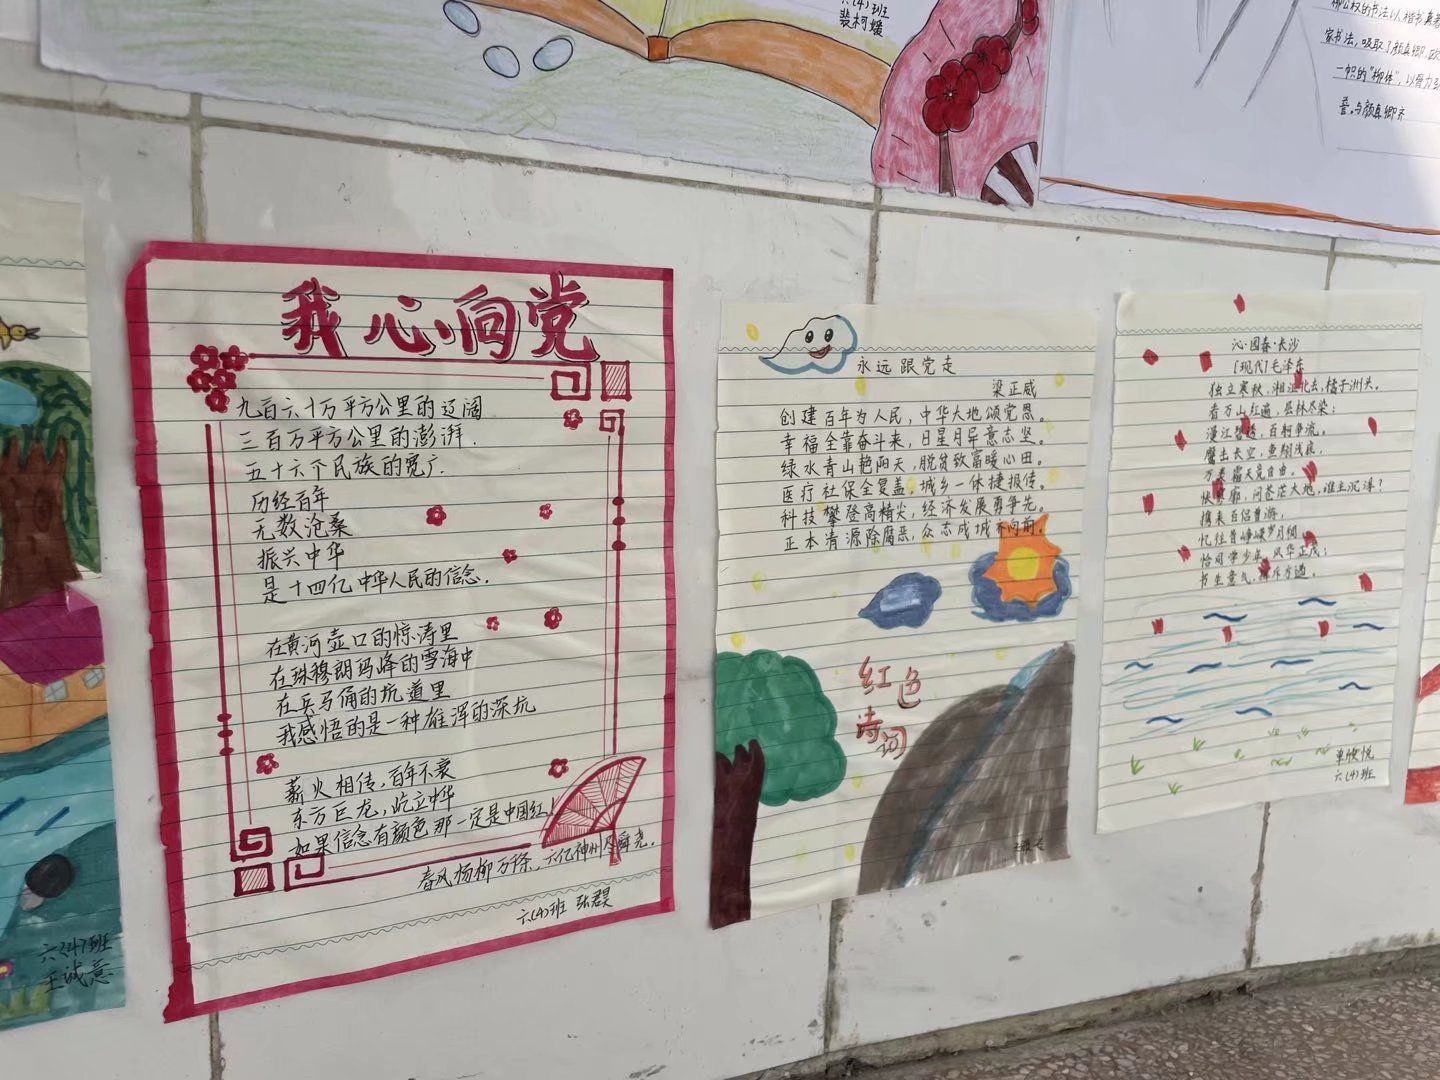 六(4)班
裴柯媛
家书法,吸取了颜真卿、欧
一帜的"柳体",以骨力
誉。与颜真卿齐
我心向党
九百六十万平方公里的辽阔
三百万平方公里的澎湃.
五十六个民族的宽广.
历经百年
无数沧桑
振兴中华
是十四亿中华人民的信念.
在黄河壶口的惊涛里
在珠穆朗玛峰的雪海中
在兵马俑的坑道里
我感悟的是一种雄浑的深坑
薪火相传,百年不衰
东方巨龙,屹立中华
如果信念有颜色那一定是中国红!
春风杨柳万条,六亿神州尽舜尧.
六(4)班 张
永远跟党走
梁正威
创建百年为人民,中华大地颂党恩。
幸福全靠奋斗来,日星月异意志坚。
绿水青山艳阳天,脱贫致富暖心田。
医疗社保全复盖,城乡一体捷报传。
科技攀登高精尖,经济发展勇争先。
正本清源除腐恶,众志成城不向前
红色
诗词
沁·园春·长沙
[现代]毛泽东
独立寒秋,湘江北去,橘子洲头。
看万山红遍,层林尽染;
漫江碧透,百舸争流。
鹰击长空,鱼翔浅底,
万类霜天竞自由。
怅寥廓,问苍茫大地,谁主沉浮?
携来百侣曾游,
忆往昔峥嵘岁月稠
恰同学少年,风华正茂;
书生意气,挥斥方遒。
单悦
六(4)班
六(4)班
王诚意